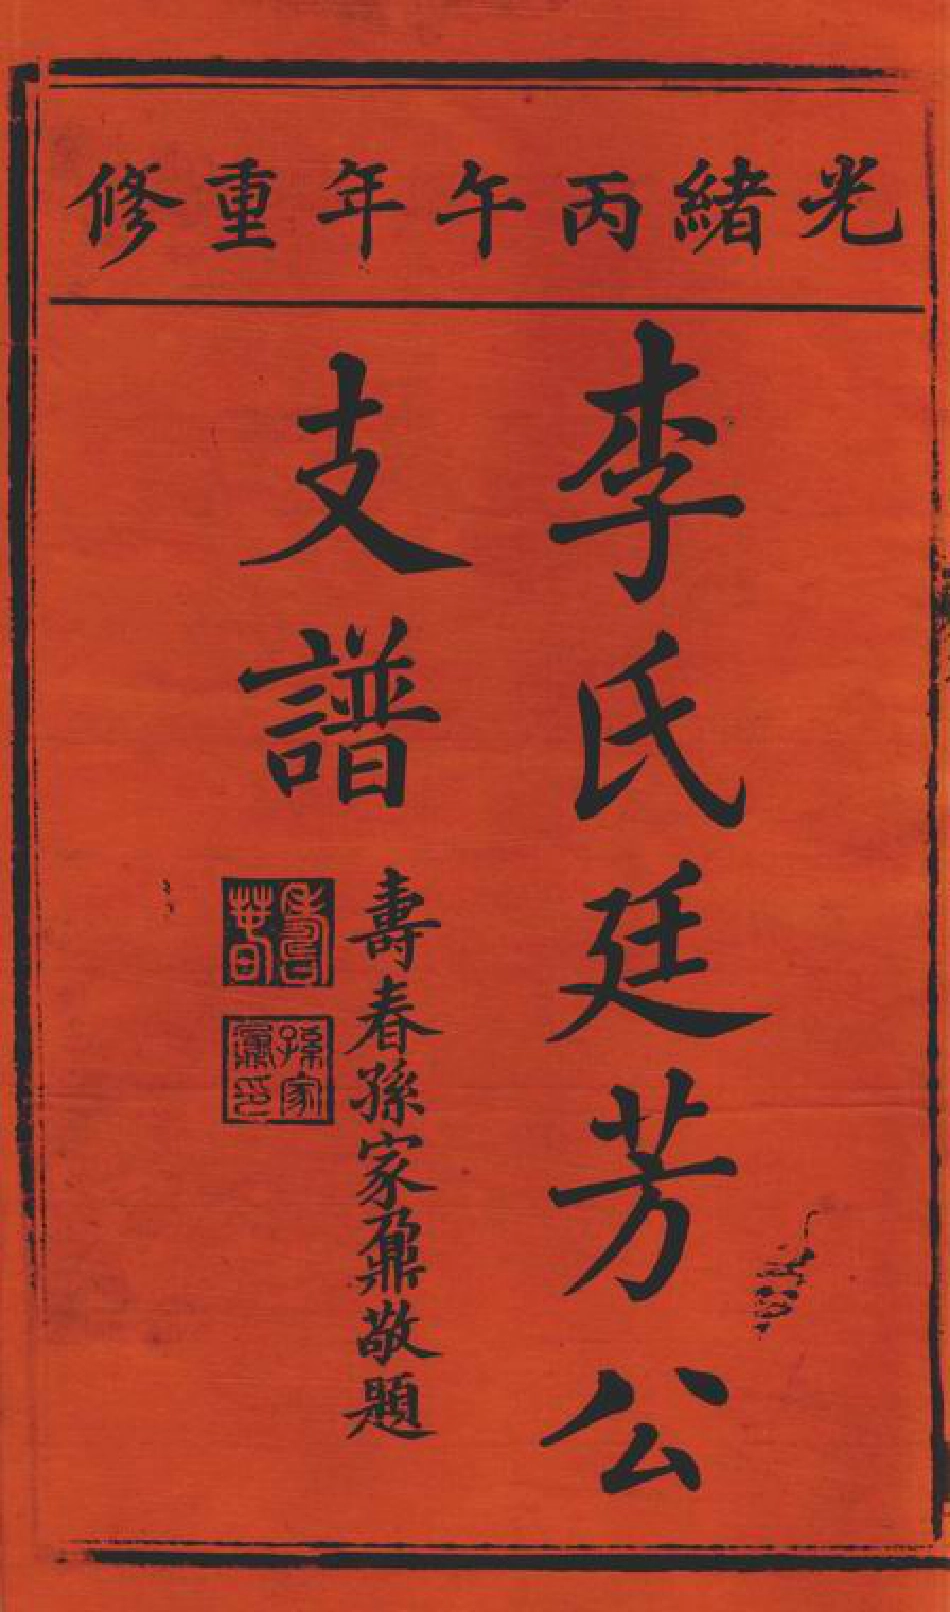 光緒丙午年重修
李氏廷芳公
支譜
壽春孫家鼐敬題
壽春
孫家鼐印